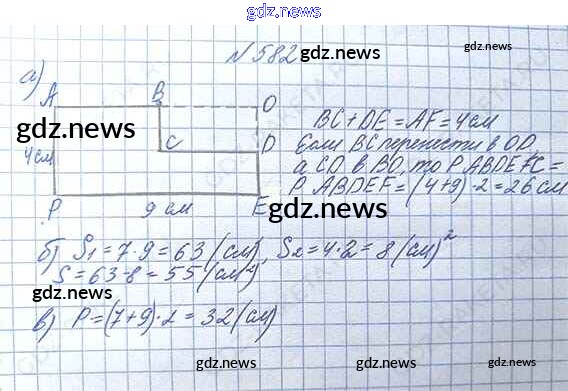 gdz.news
№ 582
gdz.news
а)
A B O
BC + DE = AF = 4 см
gdz.news
C D
Если BC перенести в OD,
4 см
а CD в BO, то P ABDEFC =
P 9 см E
P ABDEF = (4+9)·2 = 26 см
gdz.news
б) S₁ = 7·9 = 63 (см), S₂ = 4·2 = 8 (см)²
gdz.news
S = 63-8 = 55 (см²)
gdz.news
в) P = (7+9)·2 = 32 (см)
gdz.news
gdz.news gdz.news gdz.news